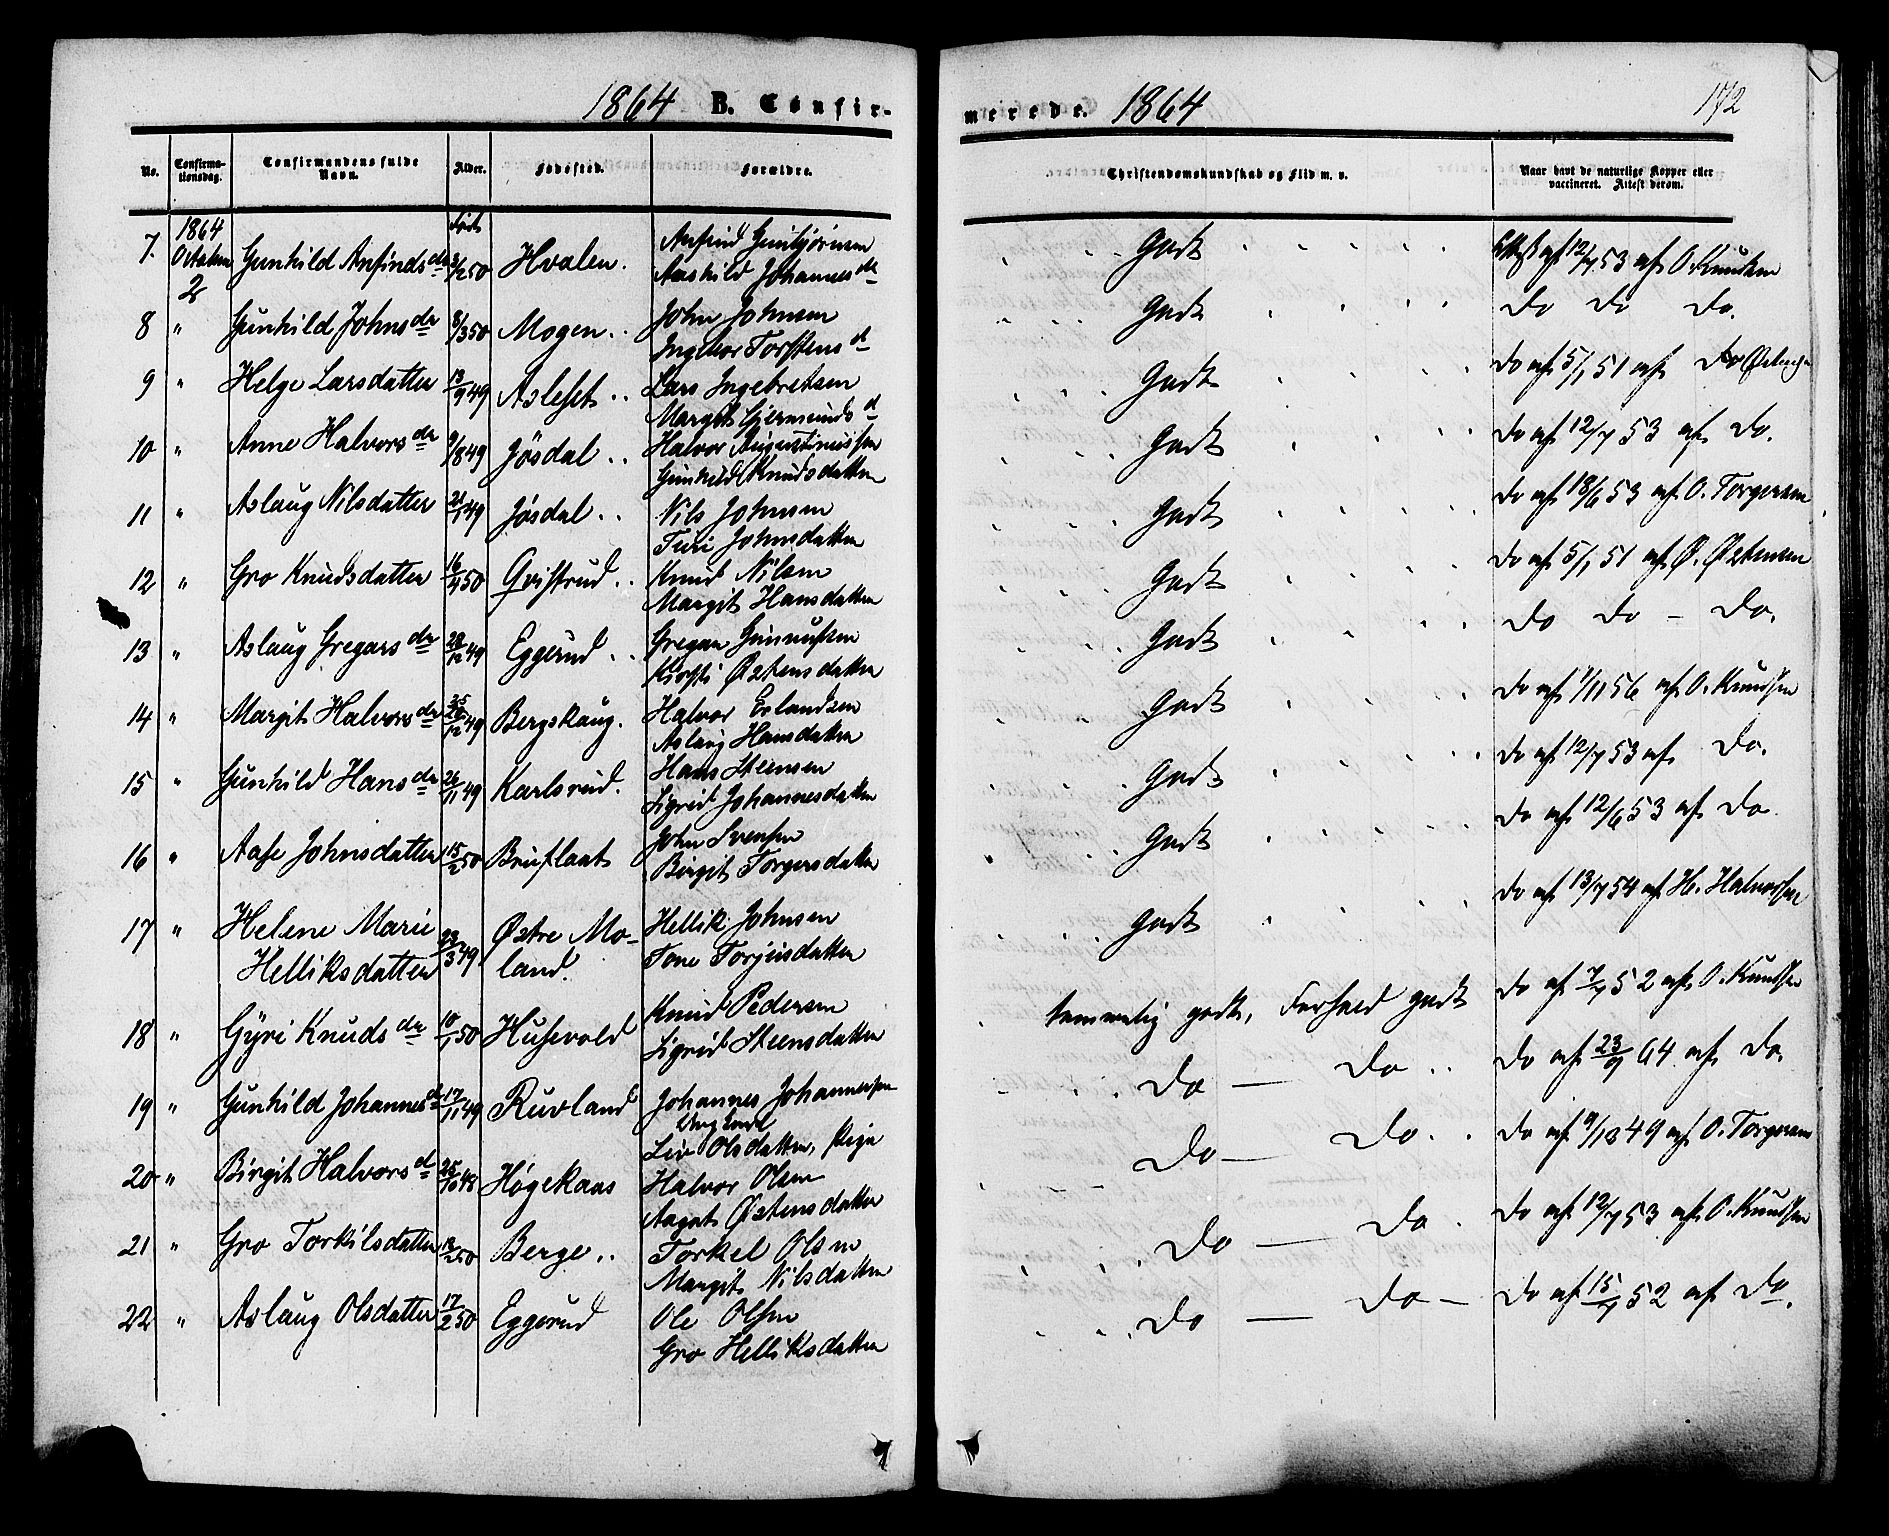 1864 B. Confir-
merede. 1864 172
No. Confirma-tionsdag. Confirmandens fulde Navn. Alder. Fødested. Forældre. Christendomskundskab og Flid m. v. Naar havt de naturlige Kopper eller vaccineret. Attest derom.
1864 Født
7. October 2 Gunhild Anfinds dr 3/2 50 Hvalen. Anfind Gunbjørnsen Godt Attest af 12/7 53 af O. Knudsen
Aashild Johannes dr
8 " Gunhild Johns dr 8/3 50 Mogen John Johnsen Godt Do Do Do.
Ingebor Torstens d
9 " Helge Larsdatter 13/9 49 Aslefet Lars Ingebretsen Godt Do af 5/1 51 af Do
Margit Gjermunds d
10 " Anne Halvors dr 9/8 49 Jøsdal Halvor Augustinussen Godt Do af 12/7 53 af Do.
Gunhild Knudsdatter
11 " Aslaug Nilsdatter 21/1 49 Jøsdal Nils Johnsen Godt Do af 18/6 53 af O. Torgersen
Turi Johnsdatter
12 " Gro Knudsdatter 16/4 50 Qvistrud Knud Nilsen Godt Do af 5/1 51 af Ø. Østensen
Margit Hansdatter
13 " Aslaug Gregars dr 28/12 49 Eggerud Gregar Gunnufsen Godt Do Do - Do.
Kirsti Østensdatter
14 " Margit Halvors dr 12 49 Bergskaug. Halvor Erlandsen Godt Do af 1/11 56 af O. Knudsen
Aslaug Hansdatter
15 " Gunhild Hans dr 26/11 49 Karlsrud. Hans Steensen Godt Do af 12/7 53 af Do.
Sigrid Johannesdatter
16 " Aase Johnsdatter 15/2 50 Bruflaat John Svensen Godt Do af 12/6 53 af Do.
Birgit Torgersdatter
17 " Helene Marie 23/3 49 Østre Mo- Hellik Johnsen Godt Do af 13/7 54 af H. Halvorsen
Helliksdatter land. Tone Torjusdatter
18 " Gyri Knuds dr 10/1 50 Husevold Knud Pedersen temmelig godt, Forhold godt Do af 7/7 52 af O. Knudsen
Sigrid Steensdatter
19 " Gunhild Johannes d 17/11 49 Ruvland Johannes Johannessen Do — Do Do af 23/9 64 af Do.
Ungkarl
Liv Olsdatter, Pige
20 " Birgit Halvors d 25/10 48 Høgekaas Halvor Olsen Do — Do. Do af 9/13 49 af O. Torgersen
Aagat Østensdatter
21 " Gro Torkilsdatter 13/2 50 Berge Torkel Olsen Do — Do Do af 12/7 53 af O. Knudsen
Margit Nilsdatter
22 " Aslaug Olsdatter 17/2 50 Eggerud Ole Olsen Do — Do — Do af 15/7 52 af Do.
Gro Helliksdatter